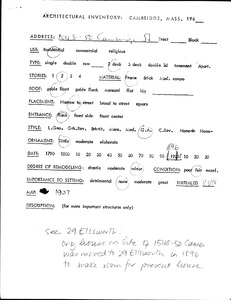 ARCHITECTURAL INVENTORY: CAMBRIDGE, MASS. 196
ADDRESS: 1548-50 Cambridge St Tract Block
USE: Residential commercial religious
TYPE: single double row 2 deck 3 deck double 3d tenement Apart.
STORIES: 1 2 3 4 MATERIAL: Frame Brick Msd. compo
ROOF: gable front gable flank mansard flat hip
PLACEMENT: Narrow to street broad to street square
ENTRANCE: front front side front center
STYLE:
ORNAMENT: little moderate elaborate
DATE: 1790 1800 10 20 30 40 50 60 70 80 90 1900 10 20 30
1896
DEGREE OF REMODELING: drastic moderate minor CONDITION: poor fair excel.
IMPORTANCE TO SETTING: detrimental none moderate great INITIALED
MAR 1967
DESCRIPTION: (for more important structures only)
see 29 Ellsworth.
orig. house on site of 1548-50 Camb
was moved to 29 Ellsworth in 1896
to make room for present house.